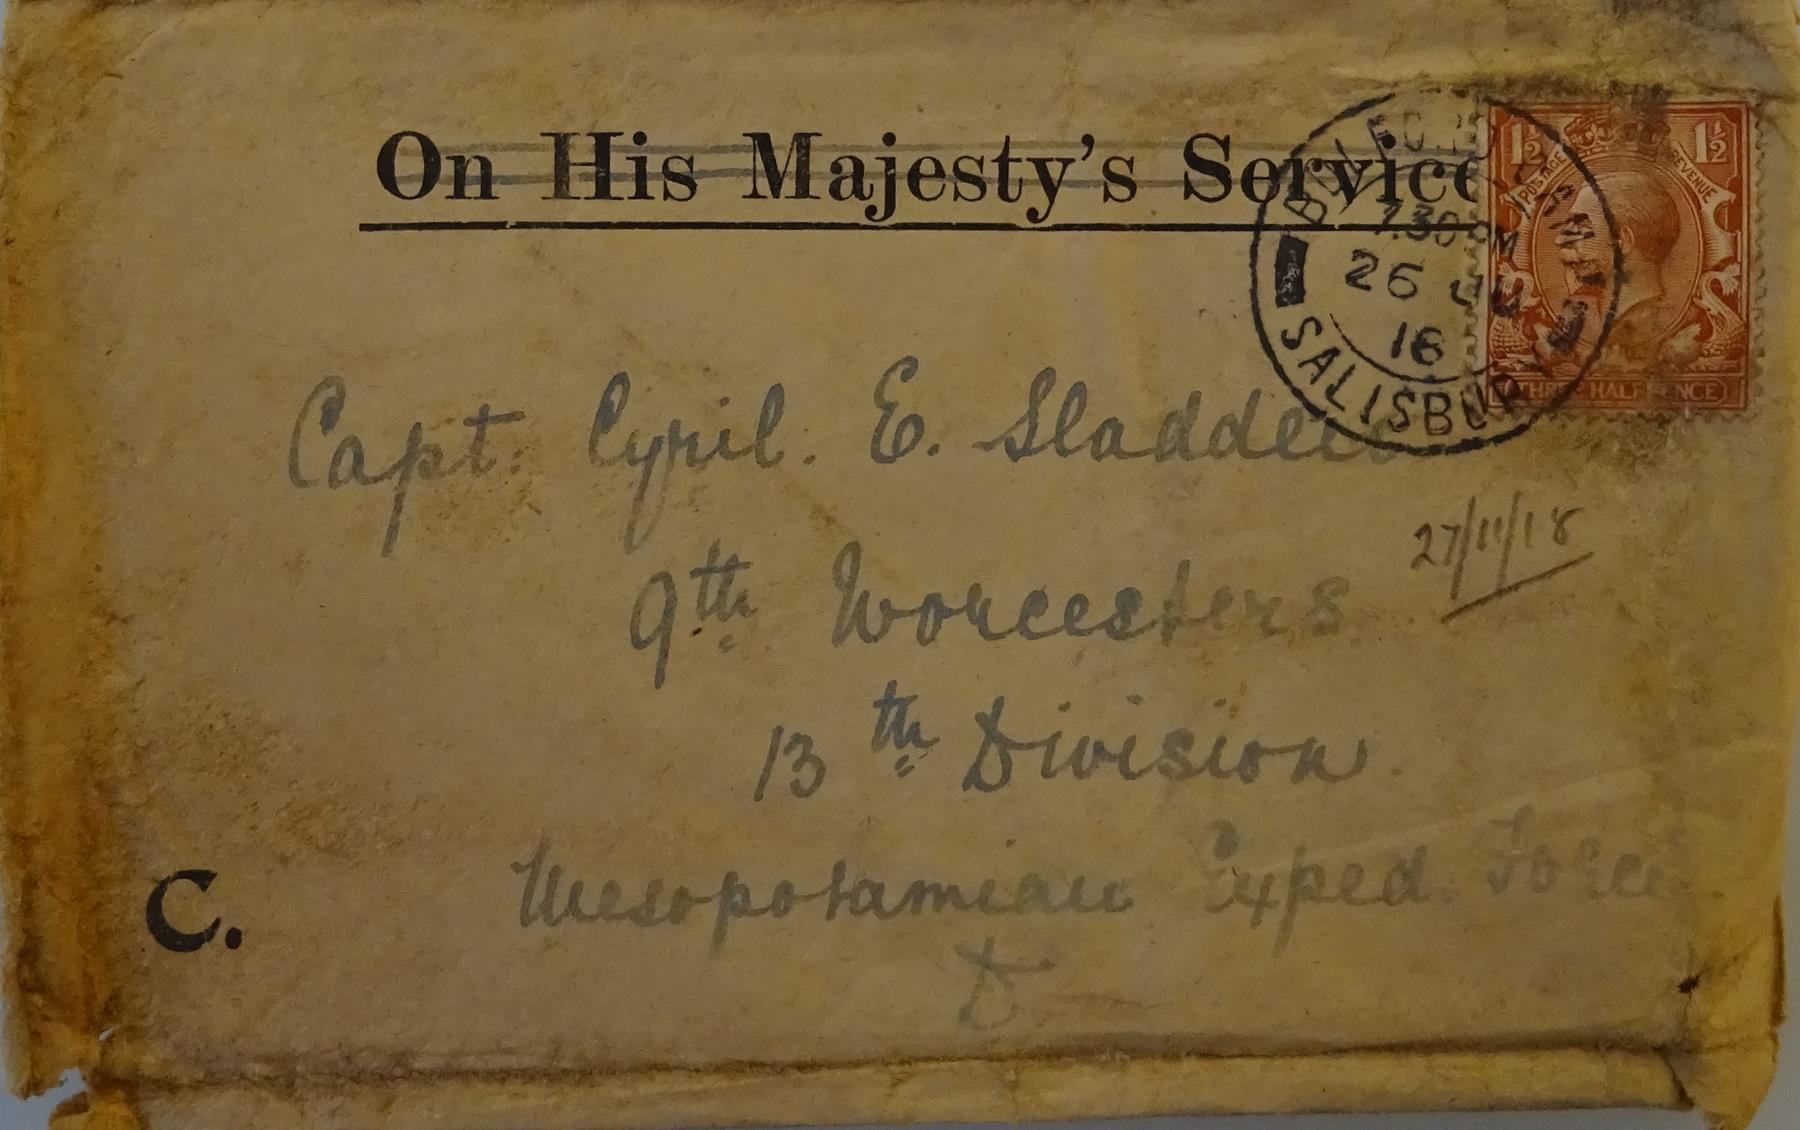 On His Majesty's Service
1½ POSTAGE REVENUE 1½
THREE HALFPENCE
7.30 PM
26 JU
16
SALISBURY
Capt. Cyril. E. Sladden
27/11/18
9th Worcesters
13th Division
Mesopotamian Exped. Force
D
C.